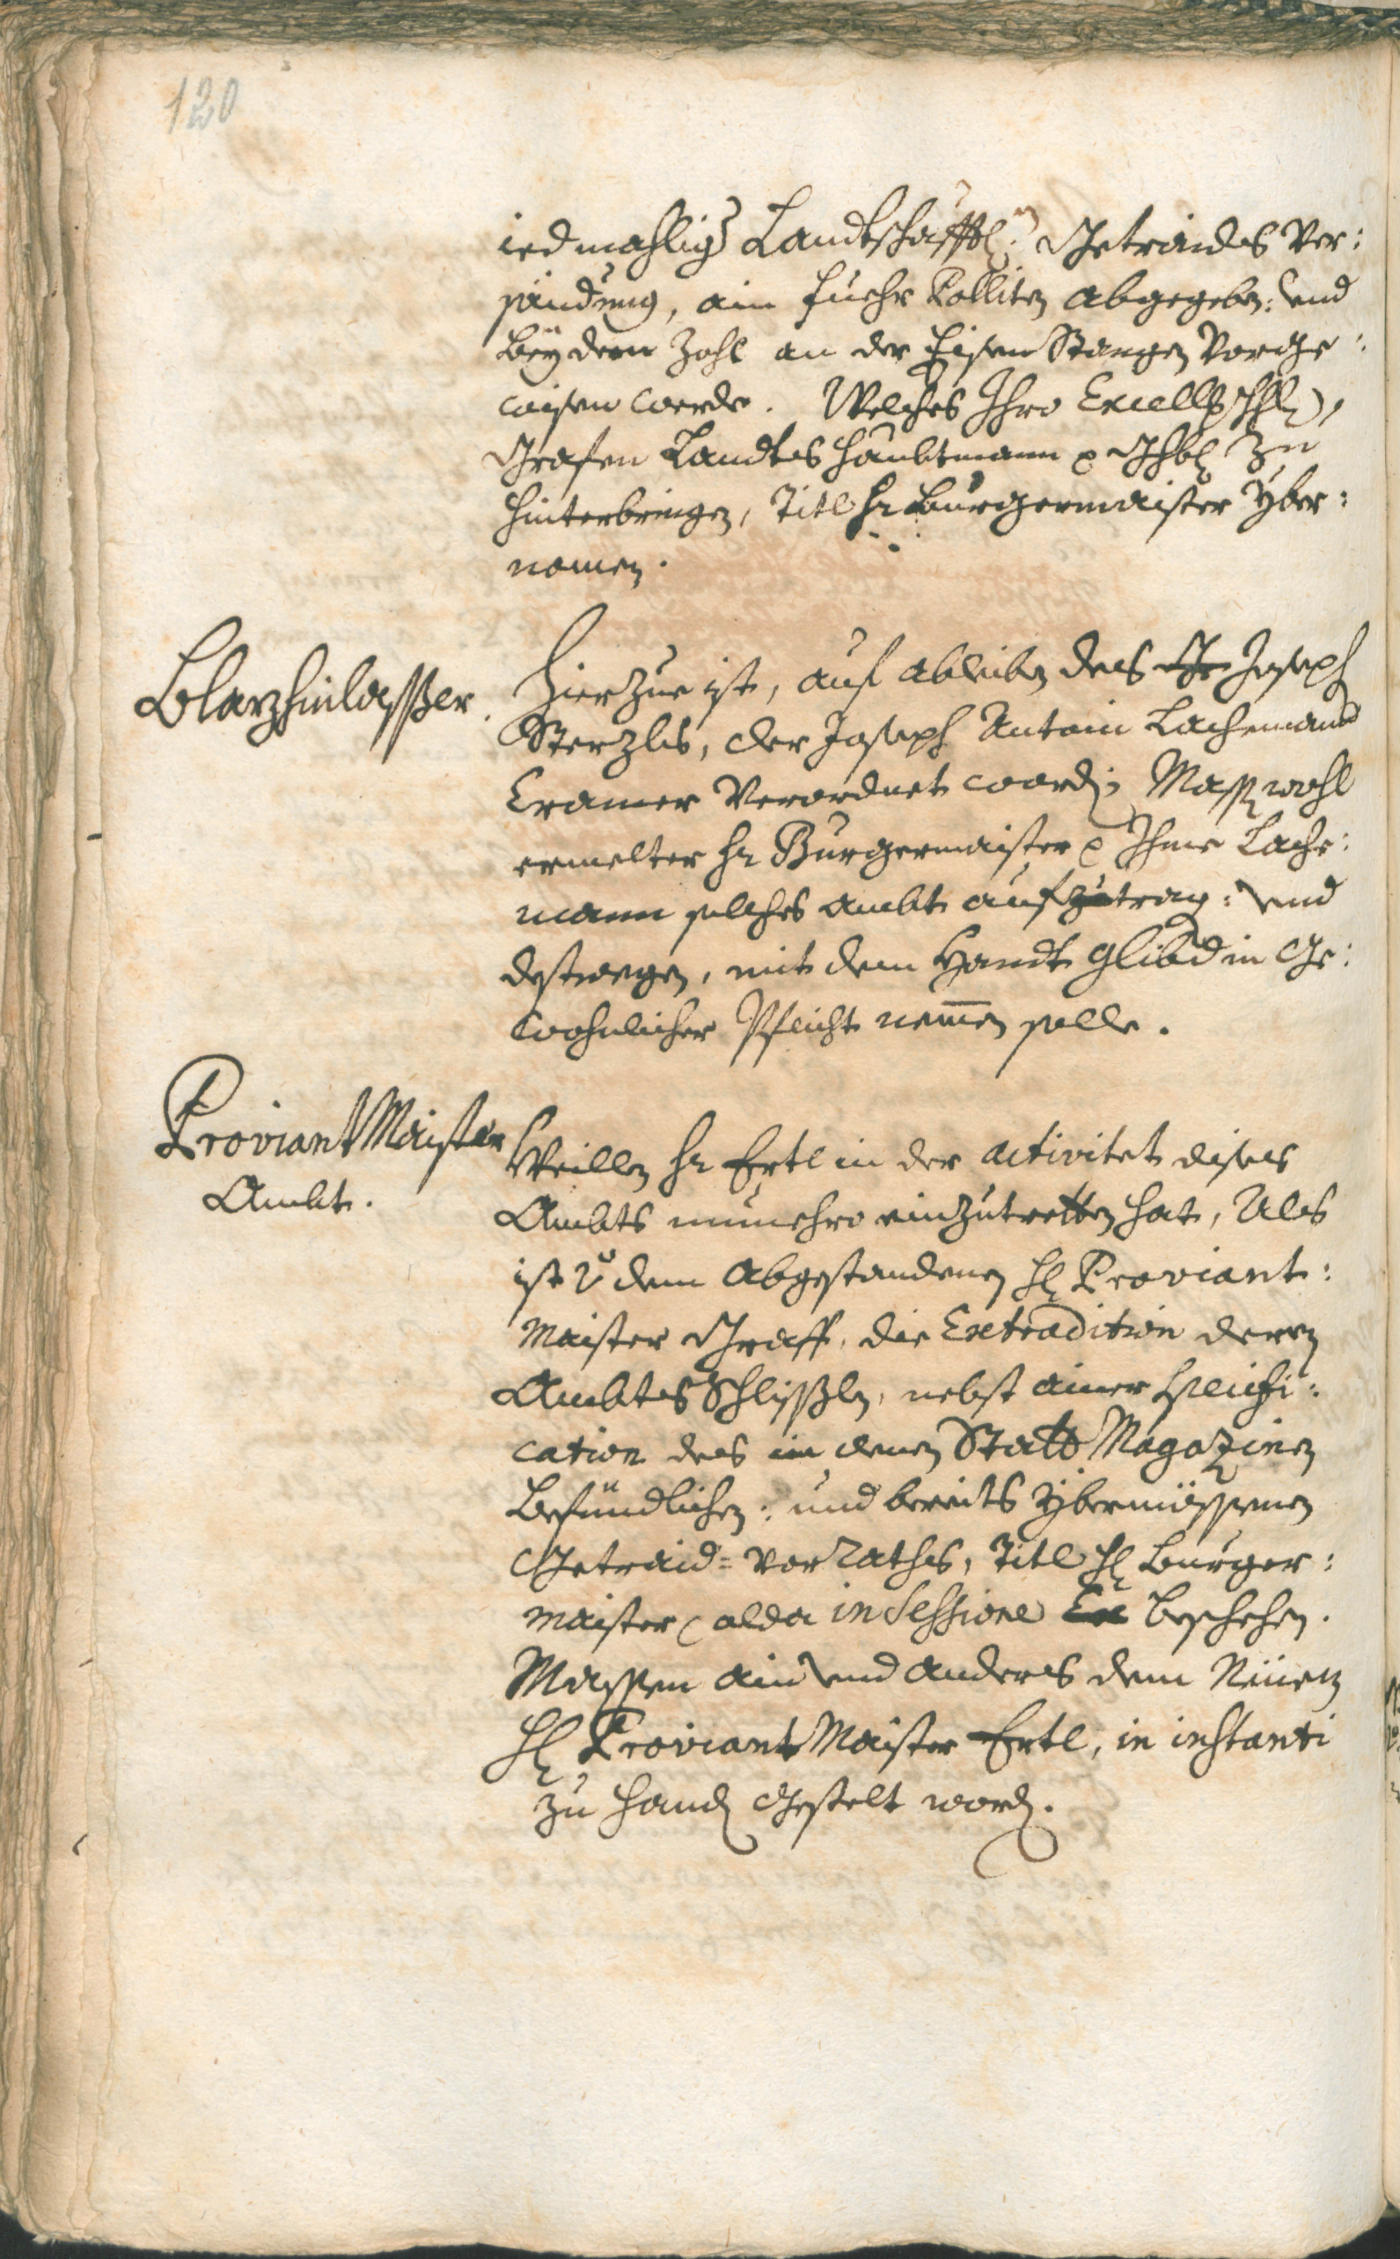 120
iedmahlig Landtschäfftl: Getraides Ver:
sändung, ain fuehr Polliten abgegeben: und
bey dem Zohl an der Eisen Stangen Vorge:
wisen werde. Welches Ihro Excellz
Grafen Landtes Haubtmann p zu
hinterbringen, Titl hr Burgermaister yber:
nomen.
Blazhinlasser.
Hierzue ist, auf ableiben des Joseph
Sterzls, der Joseph Antoni Lachemann
Cramer Verordnet word: Mass wohl
ermelter hr Burgermaister p Ihme Lache:
mann solches ambt aufzutrag: und
destwegen, mit dem Handt glibd in Ge:
wohnlicher Pflicht nemmen solle.
Proviant Maister
Ambt.
Weillen hr Ertl in der activitet dises
Ambts nunmehro einzutretten hat, Als
ist v dem abgestandenen H Proviant:
Maister Graff, die Extradition deren
Ambts Schlissln, nebst ainer
cation des in denen Statt Magazinen
befündlichen: und bereits ybermössenen
Getraid-Vorraths, Titl H Burger:
maister alda in Sessione beschehen.
Massen ain und anders dem Neüen
H Proviant Maister Ertl, in instanti
zu handen gestelt word.